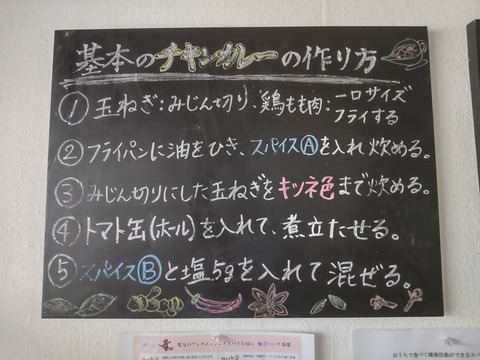 基本のチキンカレーの作り方
① 玉ねぎ:みじん切り、鶏もも肉:一口サイズ
フライする
② フライパンに油をひき、スパイスⒶを入れ炒める。
③ みじん切りにした玉ねぎをキツネ色まで炒める。
④ トマト缶(ホール)を入れて、煮立たせる。
⑤ スパイスⒷと塩5gを入れて混ぜる。